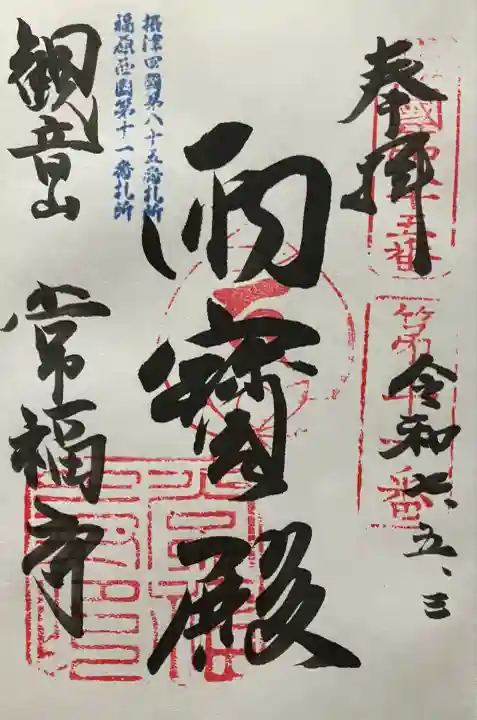 奉拝
令和七、五、三
両寳殿
摂津四國第八十五番札所
福原西國第十一番札所
観音山 常福寺